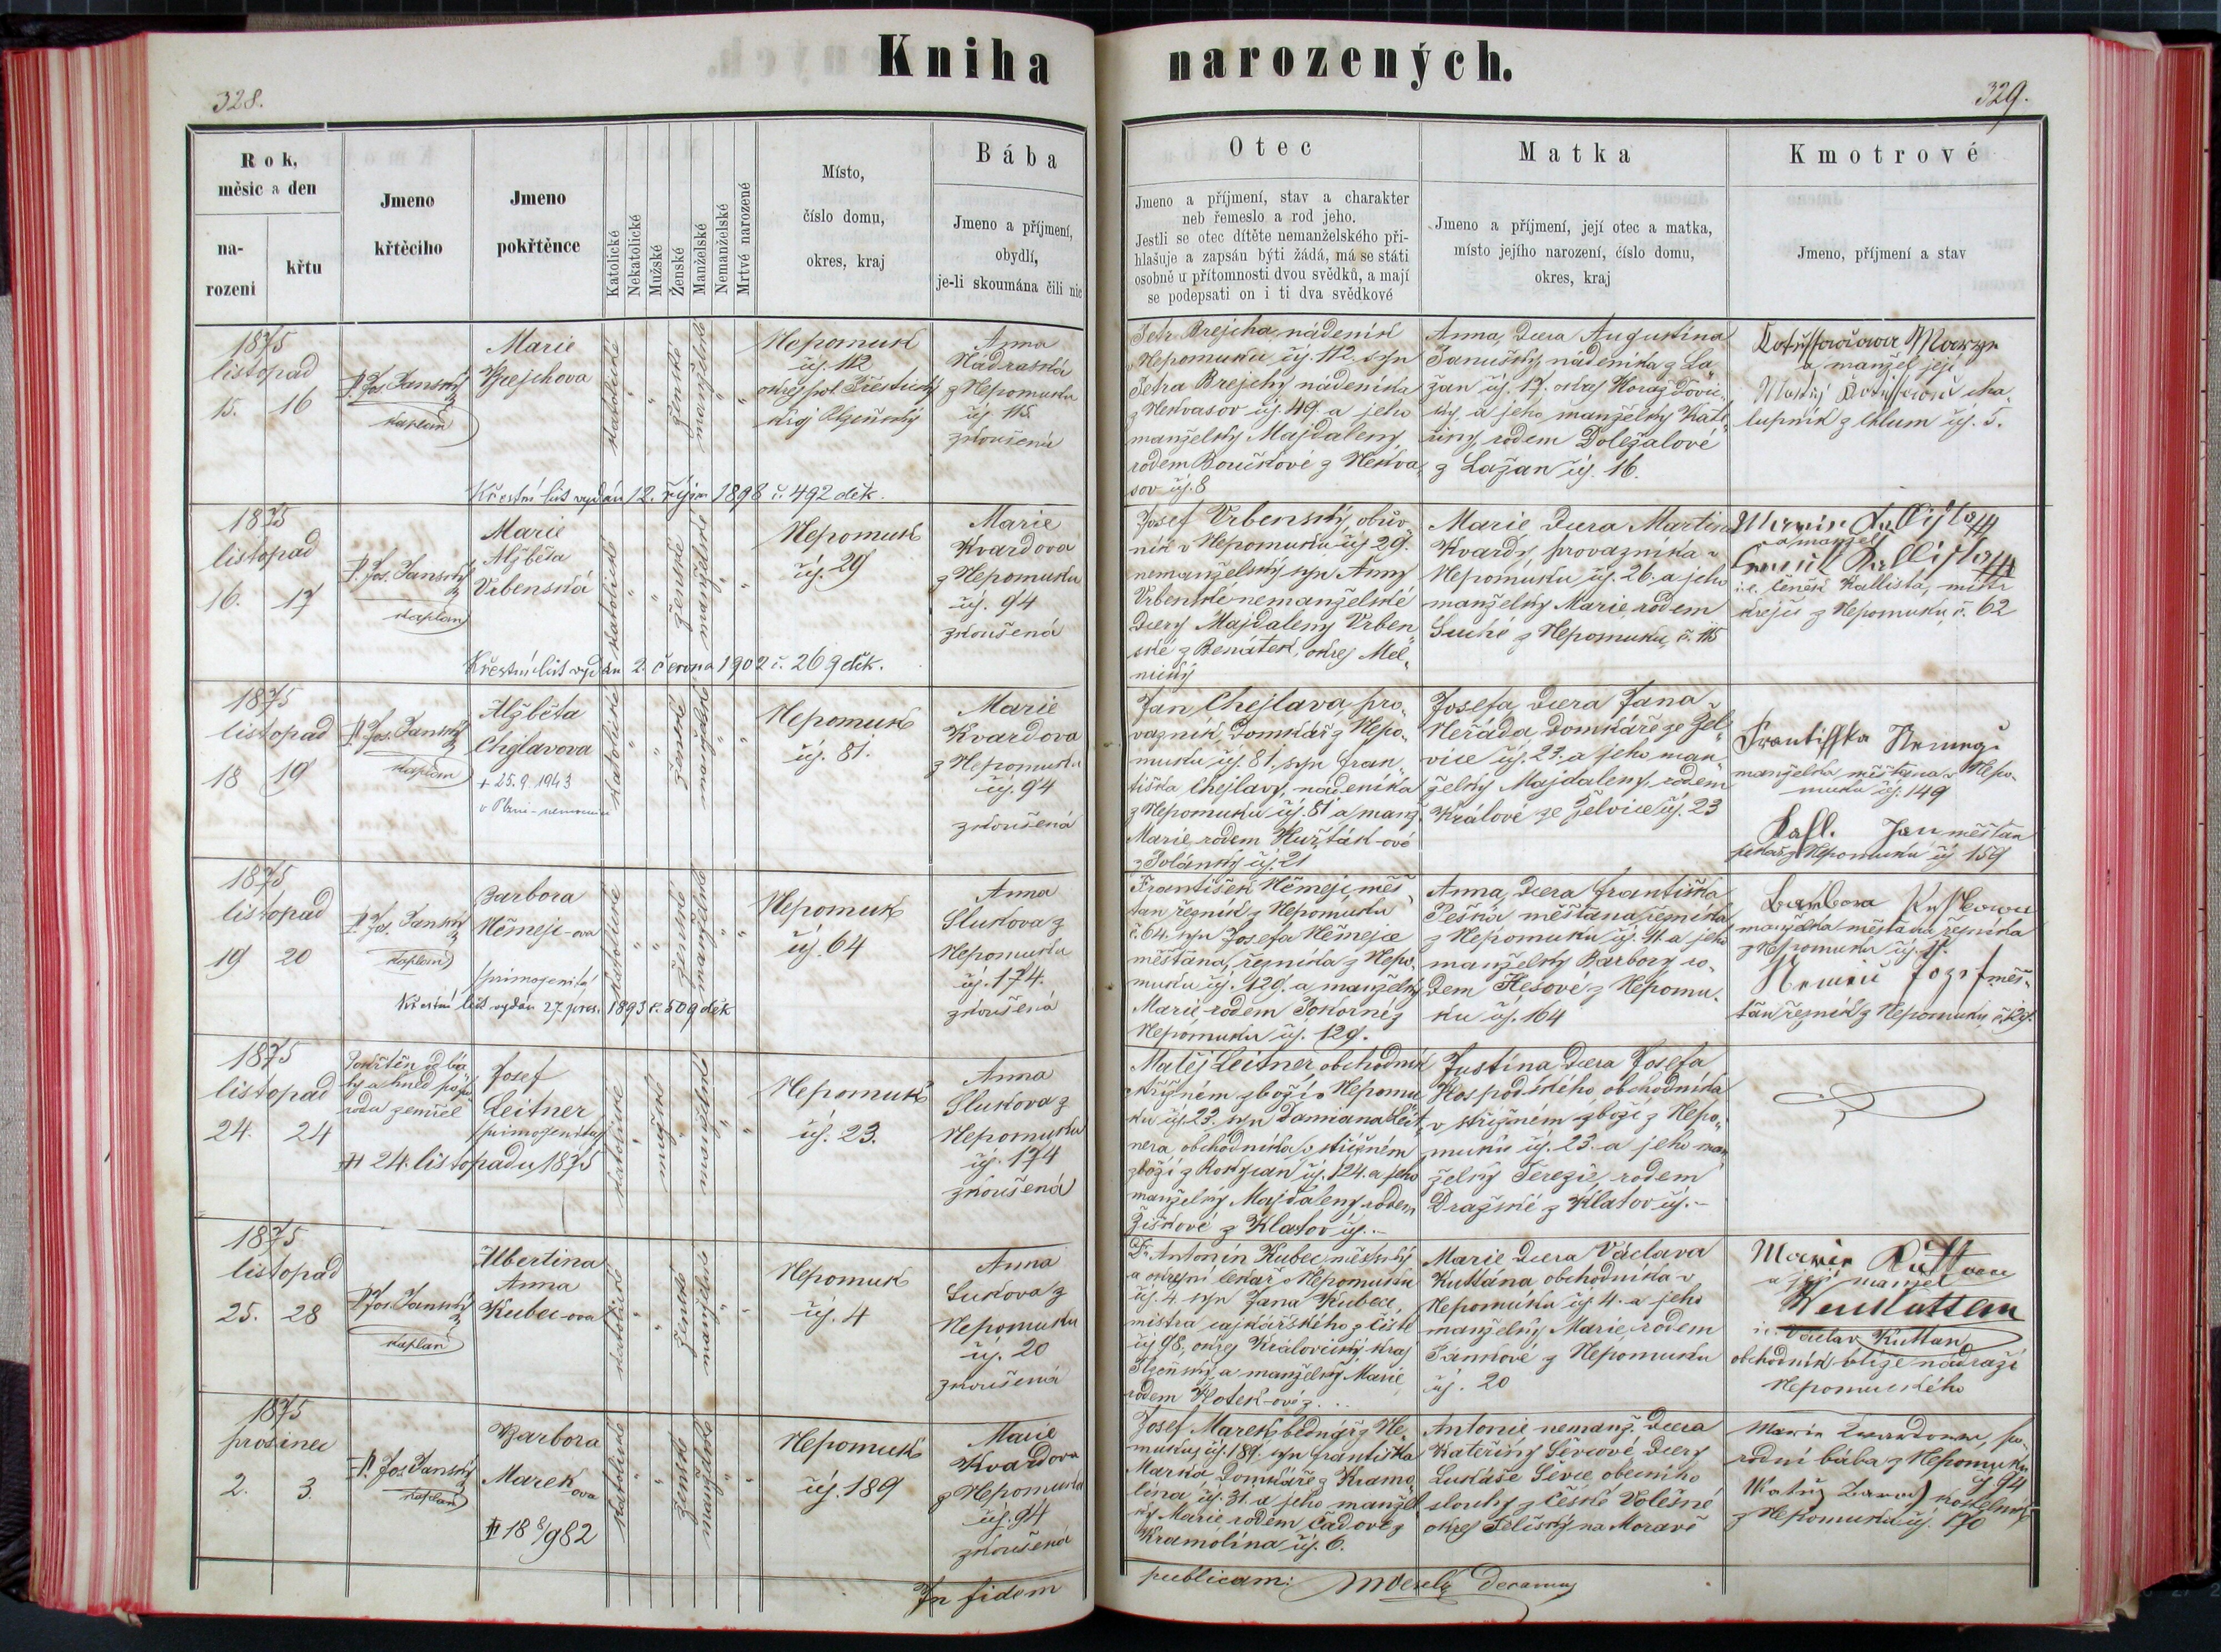 Kniha narozených.
328.
329.
Rok,
měsíc a den
na-
rození
křtu
Jmeno
křtěcího
Jmeno
pokřtěnce
Katolické
Nekatolické
Mužské
Ženské
Manželské
Nemanželské
Mrtvé narozené
Místo,
číslo domu,
okres, kraj
Bába
Jmeno a příjmení,
obydlí,
je-li skoumána čili nic
Otec
Jmeno a příjmení, stav a charakter
neb řemeslo a rod jeho.
Jestli se otec dítěte nemanželského při-
hlašuje a zapsán býti žádá, má se státi
osobně u přítomnosti dvou svědků, a mají
se podepsati on i ti dva svědkové
Matka
Jmeno a příjmení, její otec a matka,
místo jejího narození, číslo domu,
okres, kraj
Kmotrové
Jmeno, příjmení a stav
1875
listopad
15. 16
P. Jos. Janský
kaplan
Marie
Brejchova
katolické
ženské
manželské
Nepomuk
čís. 112
kraj Plzeňský
Anna
Nádraská
z Nepomuku
čís. 115
zkoušená
Petr Brejcha, nádeník
v Nepomuku čís. 112, syn
Petra Brejchy, nádeníka
z Nekvasov čís. 49. a jeho
manželky Majdaleny,
rodem Boučkové z Nekva-
sov čís. 8
Anna, dcera Augustina
Janušky, nádeníka z La-
žan čís. 17. okres Horažďovic-
ký, a jeho manželky Kate-
řiny, rodem Doležalové
z Lažan čís. 16.
a manžel její
cha-
lupník z Chlum čís. 5.
Křestní list vydán 12. října 1898 č. 492 děk.
1875
listopad
16. 17
P. Jos. Janský
kaplan
Marie
Alžběta
Vrbenská
katolické
ženské
manželské
Nepomuk
čís. 29
Marie
Kvardova
z Nepomuku
čís. 94
zkoušená
Josef Vrbenský, obuv-
ník v Nepomuku čís. 29.
nemanželský syn Anny
Vrbenské nemanželské
dcery Majdaleny Vrben-
ské z Benátek, okres Měl-
nický
Marie, dcera Martina
Kvardy, provazníka v
Nepomuku čís. 26. a jeho
manželky Marie, rodem
Suché z Nepomuku, č. 115
a manžel
i.e. Čeněk Kallista, mistr
krejčí z Nepomuku, č. 62
Křestní list vydán 2. června 1902 č. 269 děk.
1875
listopad
18 19
P. Jos. Janský
kaplan
Alžběta
Chejlavova
+ 25.9.1943
v Plzni - nemocnice
katolické
ženské
manželské
Nepomuk
čís. 81.
Marie
Kvardova
z Nepomuku
čís. 94
zkoušená
Jan Chejlava, pro-
vazník, domkář z Nepo-
muku čís. 81, syn Fran-
tiška Chejlavy, nádeníka
z Nepomuku čís. 81 a manž.
Marie rodem Hurták-ové
čís. 21
Josefa, dcera Jana
Neřáda, domkáře ze Žel-
vice čís. 23. a jeho man-
želky Majdaleny, rodem
Králové ze Želvice čís. 23
Frantisska Nemegi
manželka měšťana v Nepo-
muku čís. 149
Jan měšťan
pekař z Nepomuku čís. 159
1875
listopad
19 20
P. Jos. Janský
kaplan
Barbora
Němeji-ova
(primogenita)
katolické
ženské
manželské
Nepomuk
čís. 64
Anna
Slukova z
Nepomuku
čís. 174.
zkoušená
František Němeji, měš-
ťan řezník z Nepomuku
č. 64. syn Josefa Němeje
měšťana, řezníka z Nepo-
muku čís. 129. a manželky
Marie rodem Pokorné z
Nepomuku čís. 129.
Anna, dcera Františka
Peška měšťana řezníka
z Nepomuku čís. 11. a jeho
manželky Barbory ro-
dem Hesové z Nepomu-
ku čís. 164
Barbora
manželka měšťana řezníka
z Nepomuku čís. 11.
Jozif měš-
ťan řezník z Nepomuku, č. 129.
Křestní list vydán 27. pros. 1893 č. 509 děk
1875
listopad
24. 24
Pokřtěn od bá-
by a hned po po-
rodu zemřel
Josef
Leitner
(primogenitus)
+ 24. listopadu 1875
katolické
mužské
manželské
Nepomuk
čís. 23.
Anna
Slukova z
Nepomuku
čís. 174
zkoušená
Matěj Leitner, obchodník
v střižném zboží v Nepomu-
ku čís. 23. syn Damiana Leit-
nera, obchodníka v střižném
zboží z Rokycan čís. 124. a jeho
manželky Majdaleny rodem
Žižkové z Klatov čís. -
Justina dcera Josefa
Hospodského, obchodníka
v střižném zboží z Nepo-
muku čís. 23. a jeho man-
želky Terezie, rodem
Dražské z Klatov čís. -
1875
listopad
25. 28
P. Jos. Janský
kaplan
Albertina
Anna
Kubec-ova
katolické
ženské
manželské
Nepomuk
čís. 4
Anna
Sukova z
Nepomuku
čís. 20
zkoušená
Dr. Antonín Kubec městský
a okresní lékař v Nepomuku
čís. 4. syn Jana Kubece,
mistra cajkářského z Čisté
čís. 98, okres Královický kraj
Plzeňský, a manželky Marie
rodem Kotek-ové z. . .
Marie dcera Václava
Kuttana obchodníka v
Nepomuku čís. 4. a jeho
manželky Marie, rodem
Pánkové z Nepomuku
čís. 20
a její manžel
i.e. Václav Kuttan
obchodník blíže nádraží
Nepomuckého
1875
prosinec
2. 3.
P. Jos. Janský
kaplan
Barbora
Marek-ova
+ 18 8/982
katolické
ženské
manželské
Nepomuk
čís. 189
Marie
Kvardova
z Nepomuku
čís. 94
zkoušená
Josef Marek bednář z Ne-
muku čís. 189. syn Františka
Marka, domkáře z Kramo-
lína čís. 31. a jeho manžel-
ky Marie rodem Čadové z
Kramolína čís. 6.
Antonie nemanž. dcera
Kateřiny Ševcové, dcery
Lukáše Ševce, obecního
slouhy z České Volešné
okres Telčský na Moravě
Marie Kvardowa, po-
rodní bába z Nepomuku
č 94
kostelník
z Nepomuku čís. 170
In fidem
publicam: